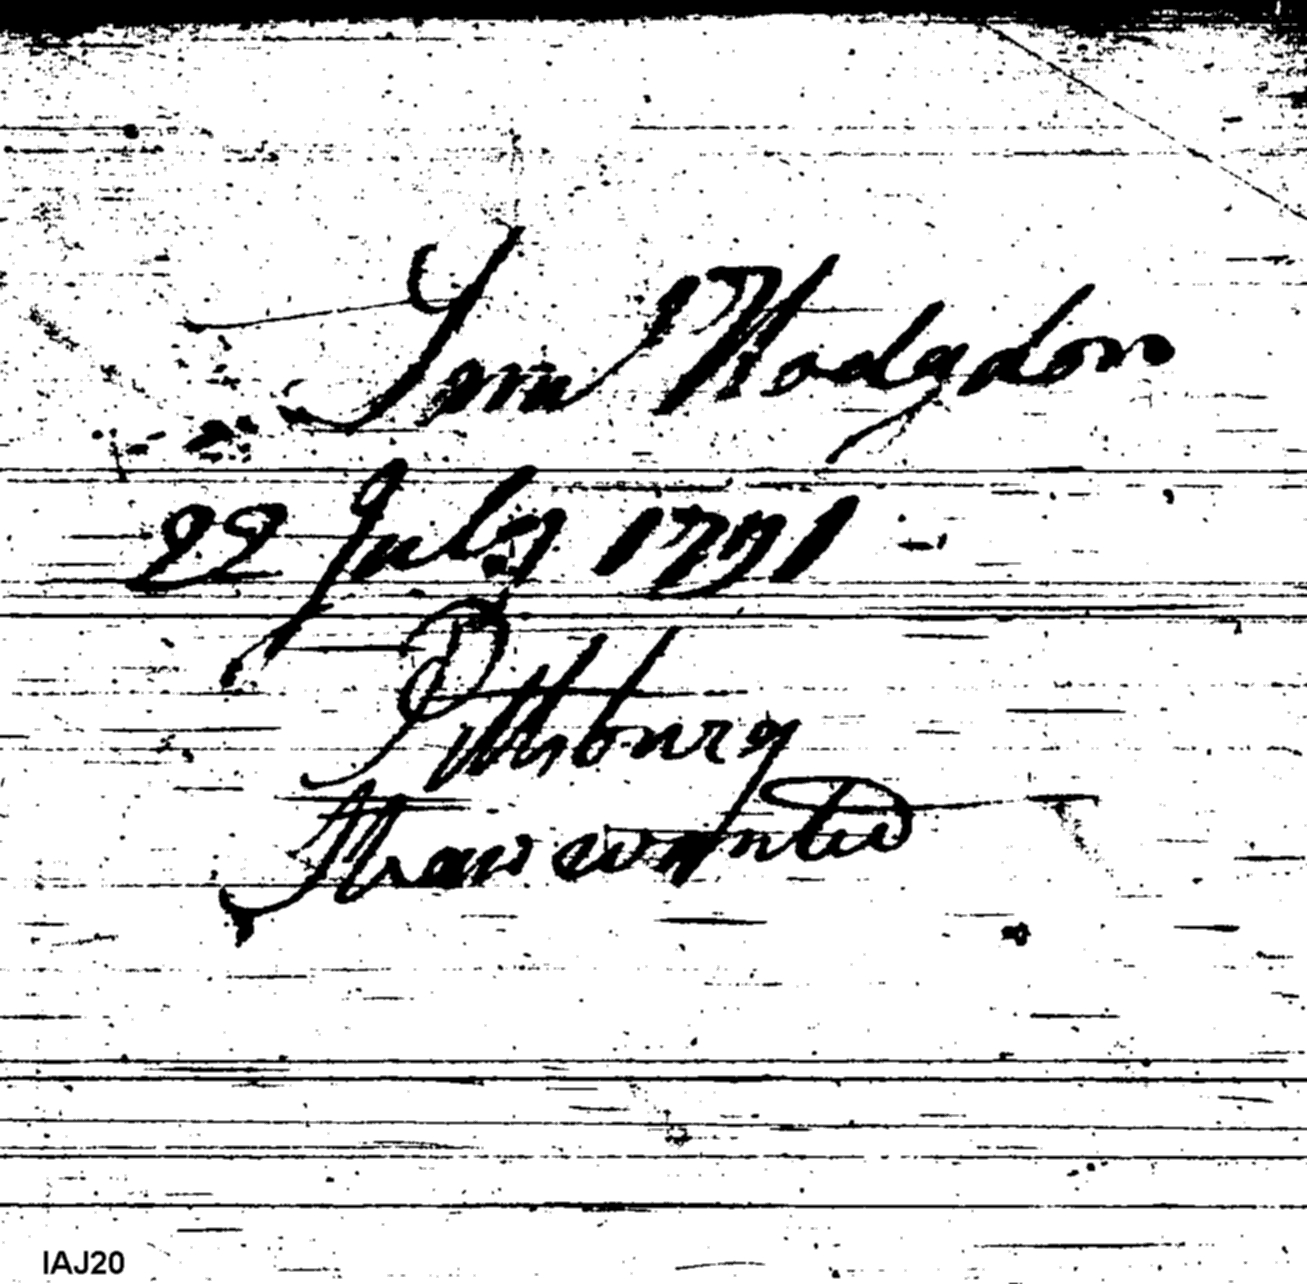 Sam Hodgdon
22 July 1791
Pittsburg
Straw wanted
IAJ20